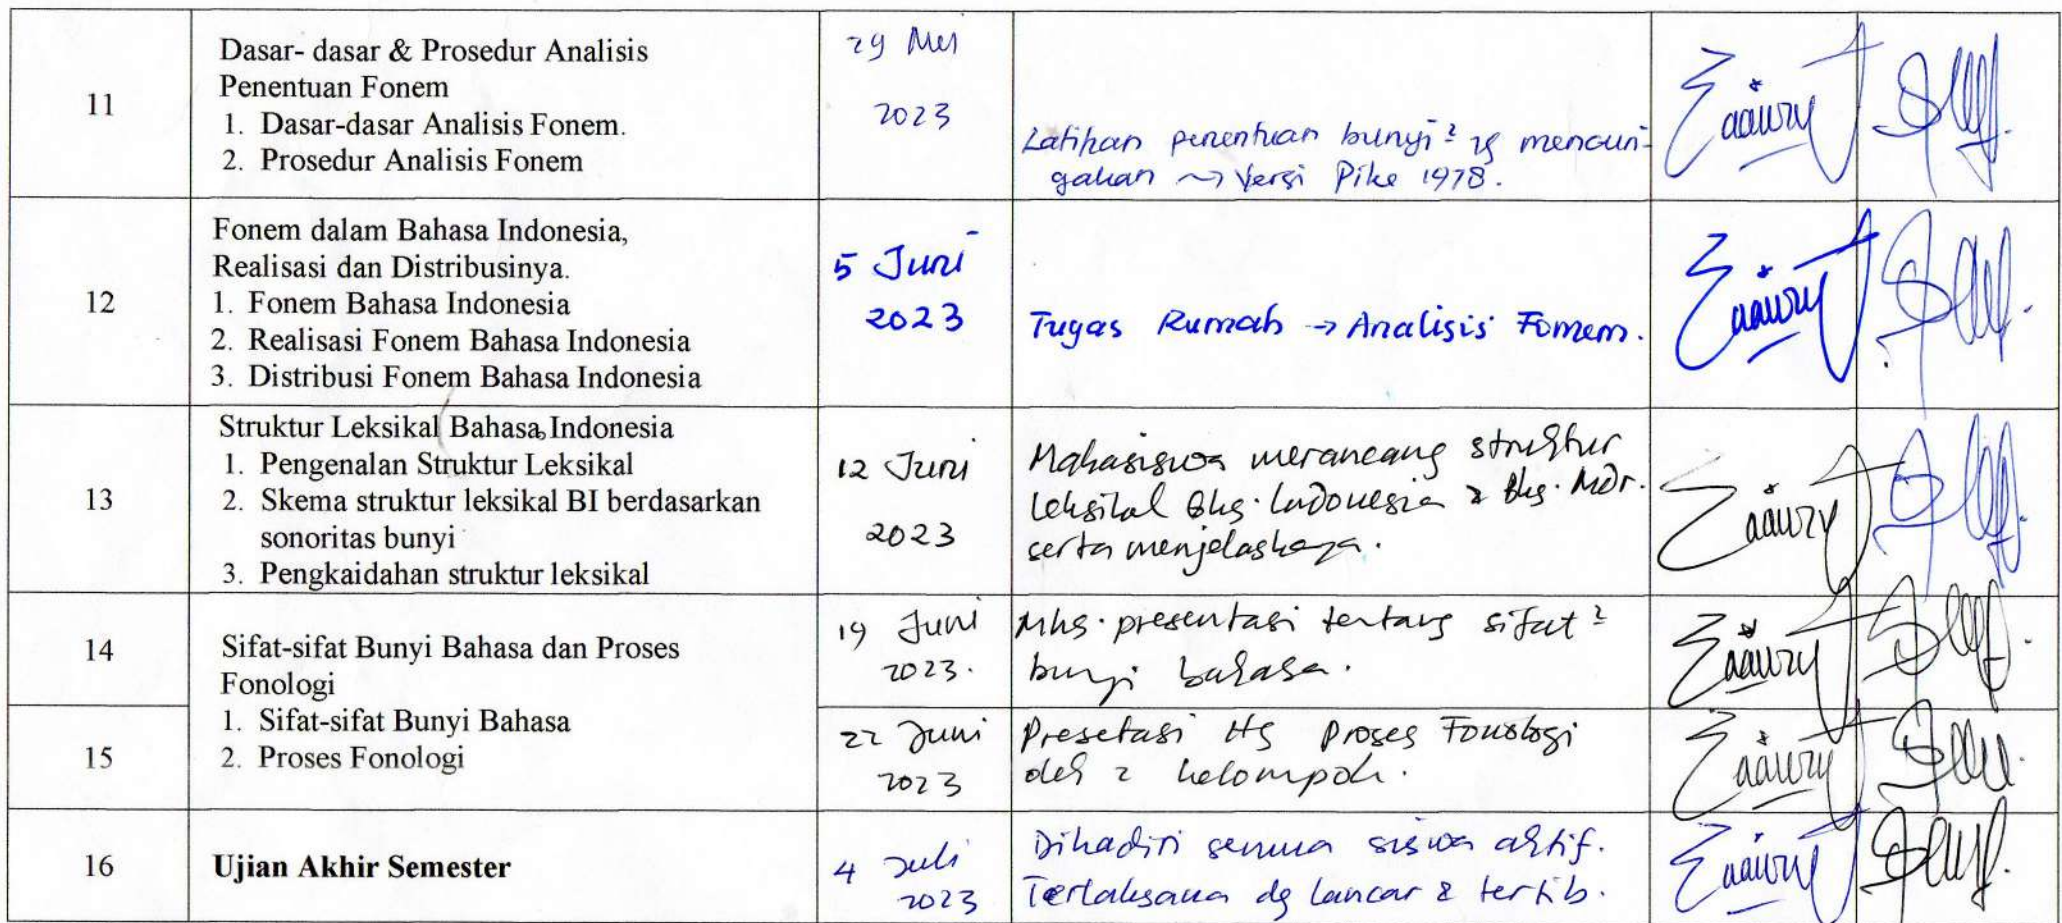 11
Dasar- dasar & Prosedur Analisis
Penentuan Fonem
1. Dasar-dasar Analisis Fonem.
2. Prosedur Analisis Fonem
29 Mei
2023
Latihan penentuan bunyi² yg mencuri-
gakan ~> Versi Pike 1978.
12
Fonem dalam Bahasa Indonesia,
Realisasi dan Distribusinya.
1. Fonem Bahasa Indonesia
2. Realisasi Fonem Bahasa Indonesia
3. Distribusi Fonem Bahasa Indonesia
5 Juni
2023
Tugas Rumah → Analisis Fomem.
13
Struktur Leksikal Bahasa Indonesia
1. Pengenalan Struktur Leksikal
2. Skema struktur leksikal BI berdasarkan
sonoritas bunyi
3. Pengkaidahan struktur leksikal
12 Juni
2023
Mahasiswa merancang struktur
leksikal Bhs. Indonesia & Bhs. Mdr.
serta menjelaskanya.
14
Sifat-sifat Bunyi Bahasa dan Proses
Fonologi
1. Sifat-sifat Bunyi Bahasa
2. Proses Fonologi
19 Juni
2023.
Mhs. presentasi tentang sifat²
bunyi bahasa.
15
22 Juni
2023
Presetasi ttg Proses Fonologi
oleh 2 kelompok.
16
Ujian Akhir Semester
4 Juli
2023
Dihadiri semua siswa aktif.
Terlaksana dg lancar & tertib.